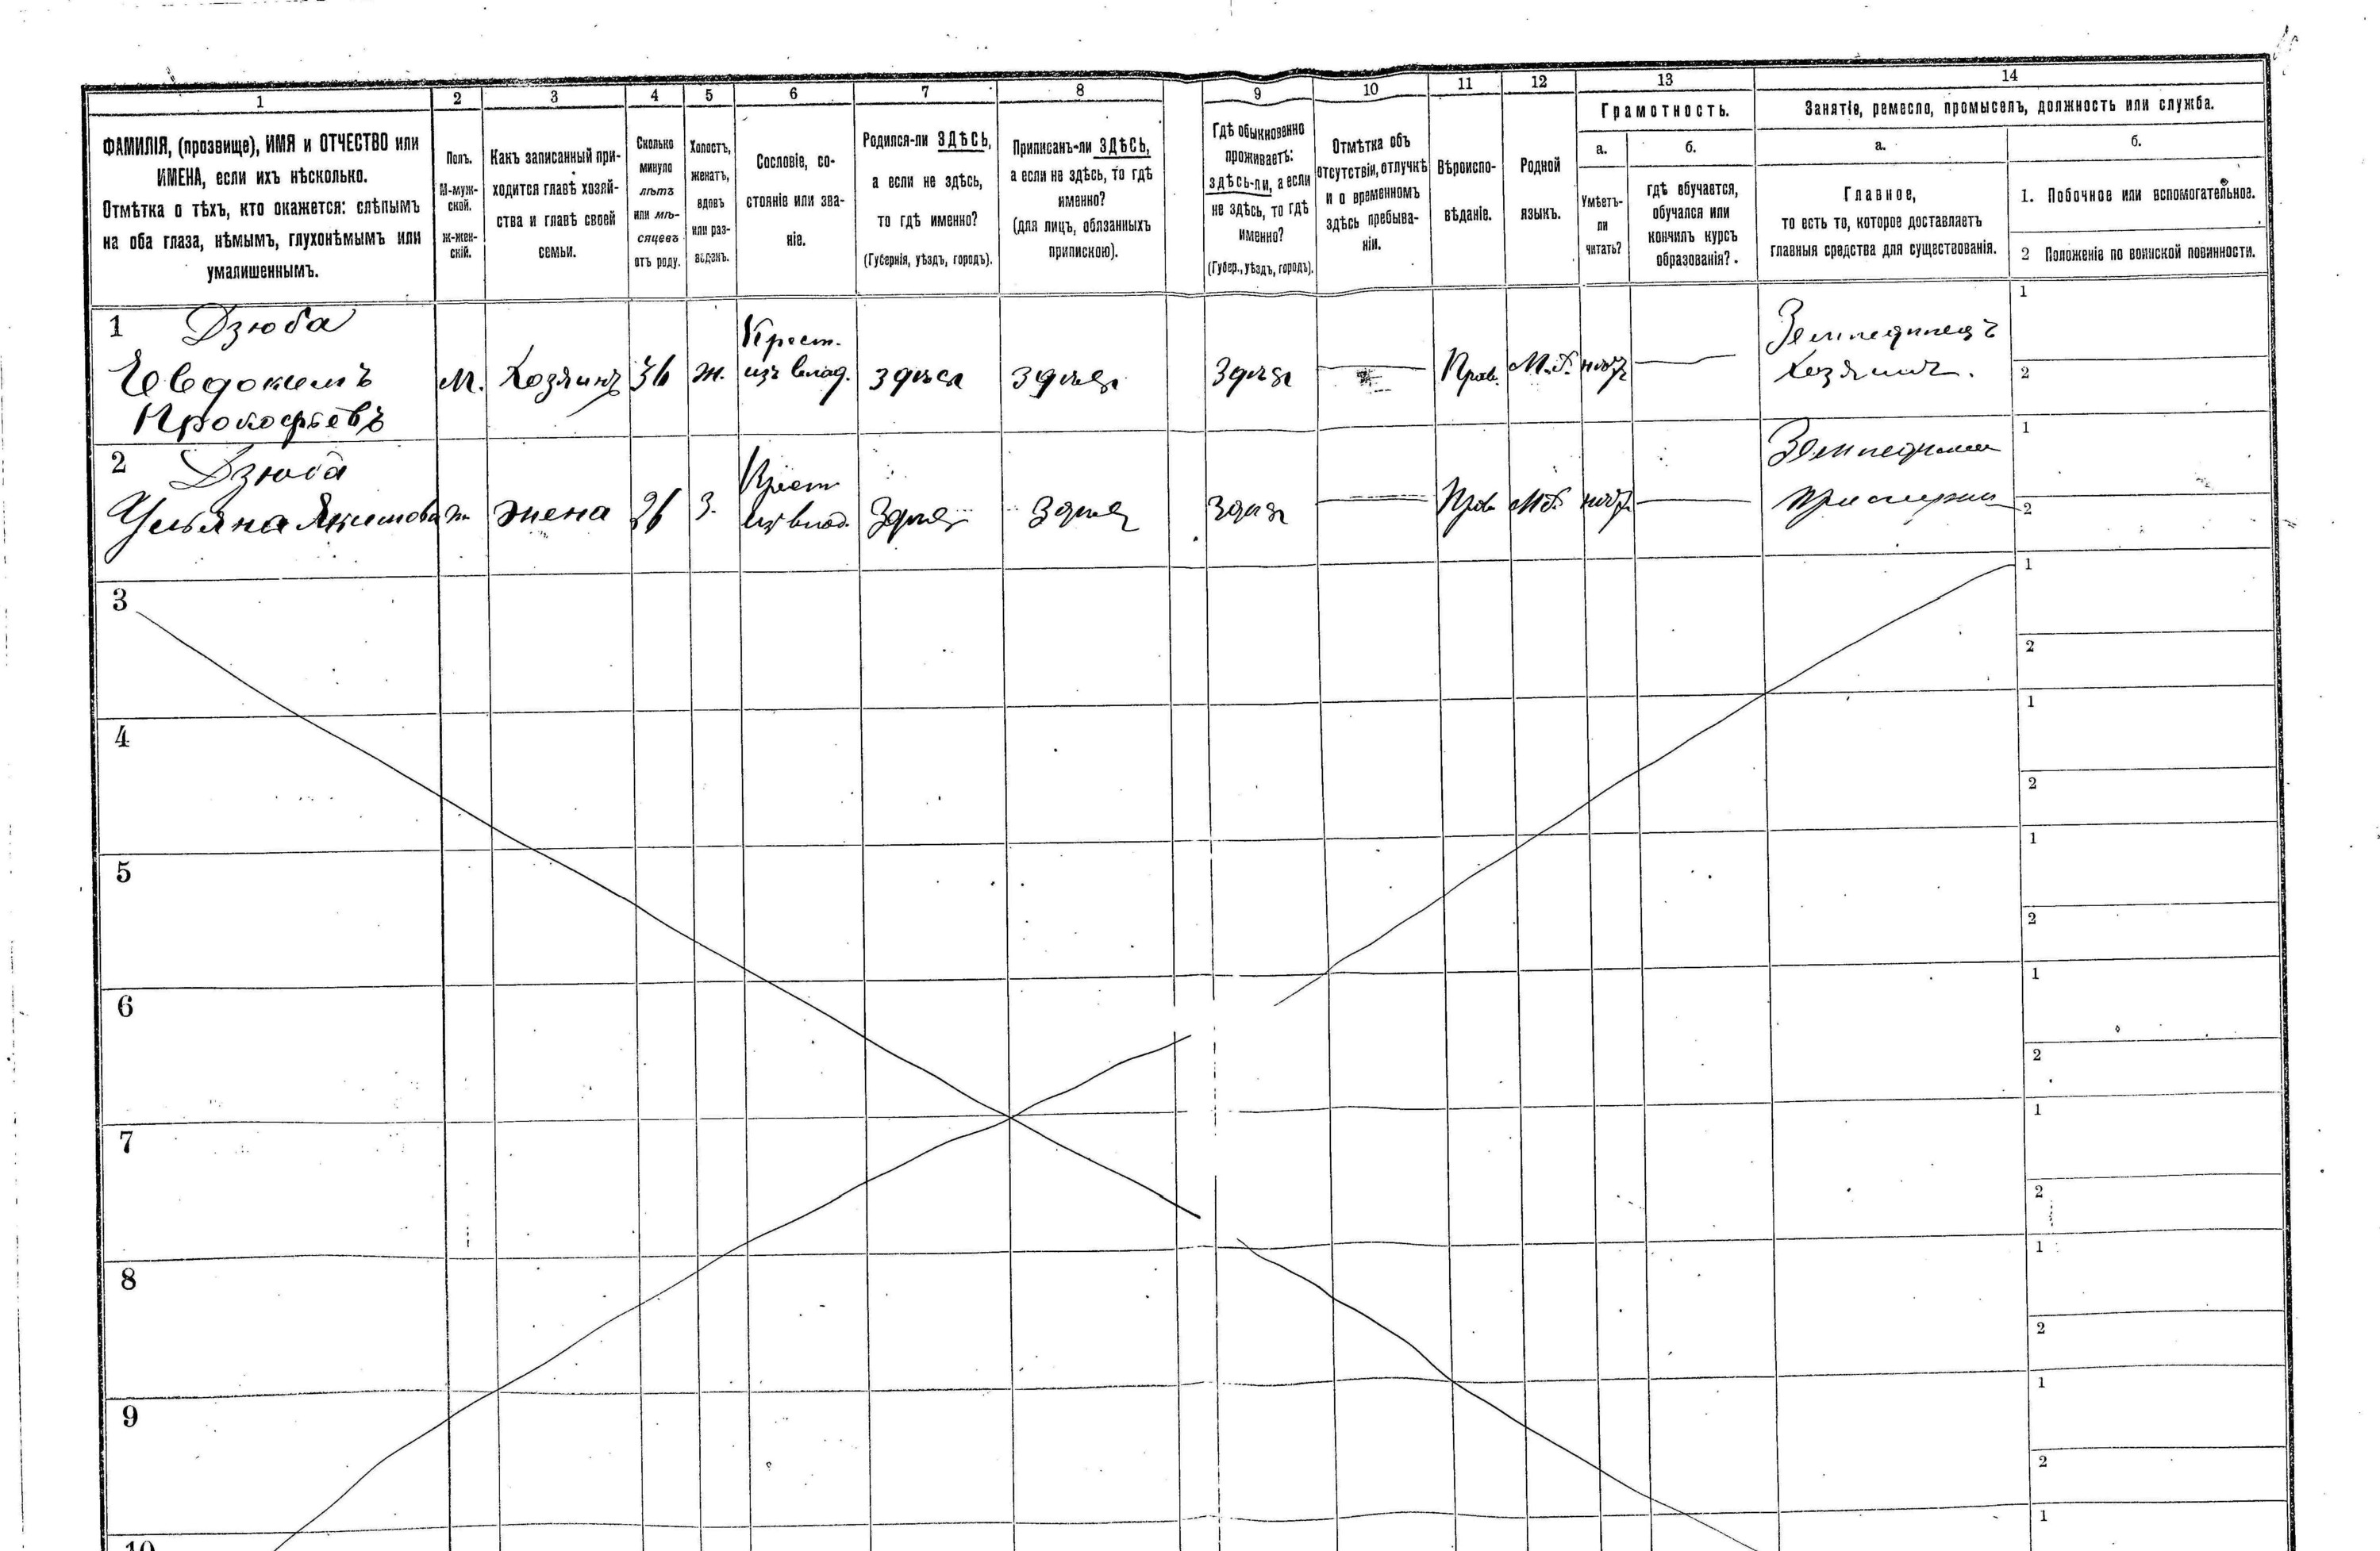 1 2 3 4 5 6 7 8 9 10 11 12 13 14
ФАМИЛІЯ, (прозвище), ИМЯ и ОТЧЕСТВО или
ИМЕНА, если ихъ нѣсколько.
Отмѣтка о тѣхъ, кто окажется: слѣпымъ
на оба глаза, нѣмымъ, глухонѣмымъ или
умалишеннымъ.
Полъ.
М-муж-
ской.
ж-жен-
скій.
Какъ записанный при-
ходится главѣ хозяй-
ства и главѣ своей
семьи.
Сколько
минуло
лѣтъ
или мѣ-
сяцевъ
отъ роду.
Холостъ,
женатъ,
вдовъ
или раз-
веденъ.
Сословіе, со-
стояніе или зва-
ніе.
Родился-ли ЗДѢСЬ,
а если не здѣсь,
то гдѣ именно?
(Губернія, уѣздъ, городъ).
Приписанъ-ли ЗДѢСЬ,
а если не здѣсь, то гдѣ
именно?
(для лицъ, обязанныхъ
припискою).
Гдѣ обыкновенно
проживаетъ:
здѣсь-ли, а если
не здѣсь, то гдѣ
именно?
(Губер., уѣздъ, городъ).
Отмѣтка объ
отсутствіи, отлучкѣ
и о временномъ
здѣсь пребыва-
ніи.
Вѣроиспо-
вѣданіе.
Родной
языкъ.
Грамотность.
а.
Умѣетъ-
ли
читать?
б.
гдѣ обучается,
обучался или
кончилъ курсъ
образованія?.
Занятіе, ремесло, промыселъ, должность или служба.
а.
Главное,
то есть то, которое доставляетъ
главныя средства для существованія.
б.
1. Побочное или вспомогательное.
2 Положеніе по воинской повинности.
1 Дзюба
Евдокимъ
Прокофьевъ
М.
Хозяинъ
36
ж.
Крест.
изъ влад.
здѣся
здѣся
Здѣся
Прав.
М.Р.
нѣтъ
Земледѣлецъ
Хозяинъ.
1
2
2 Дзюба
Ульяна Якимова
ж.
жена
26
З.
Крест
изъ влад.
Здѣся
Здѣся
Здѣся
Прав.
М.Р.
нѣтъ
1
2
3
1
2
4
1
2
5
1
2
6
1
2
7
1
2
8
1
2
9
1
2
10
1